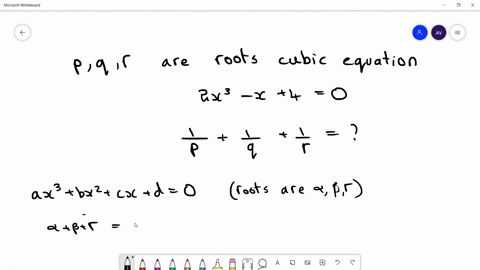 Microsoft Whiteboard
AV
p, q, r are roots cubic equation
2x³ - x + 4 = 0
1/p + 1/q + 1/r = ?
ax³ + bx² + cx + d = 0 (roots are α, β, r)
α + β + r =